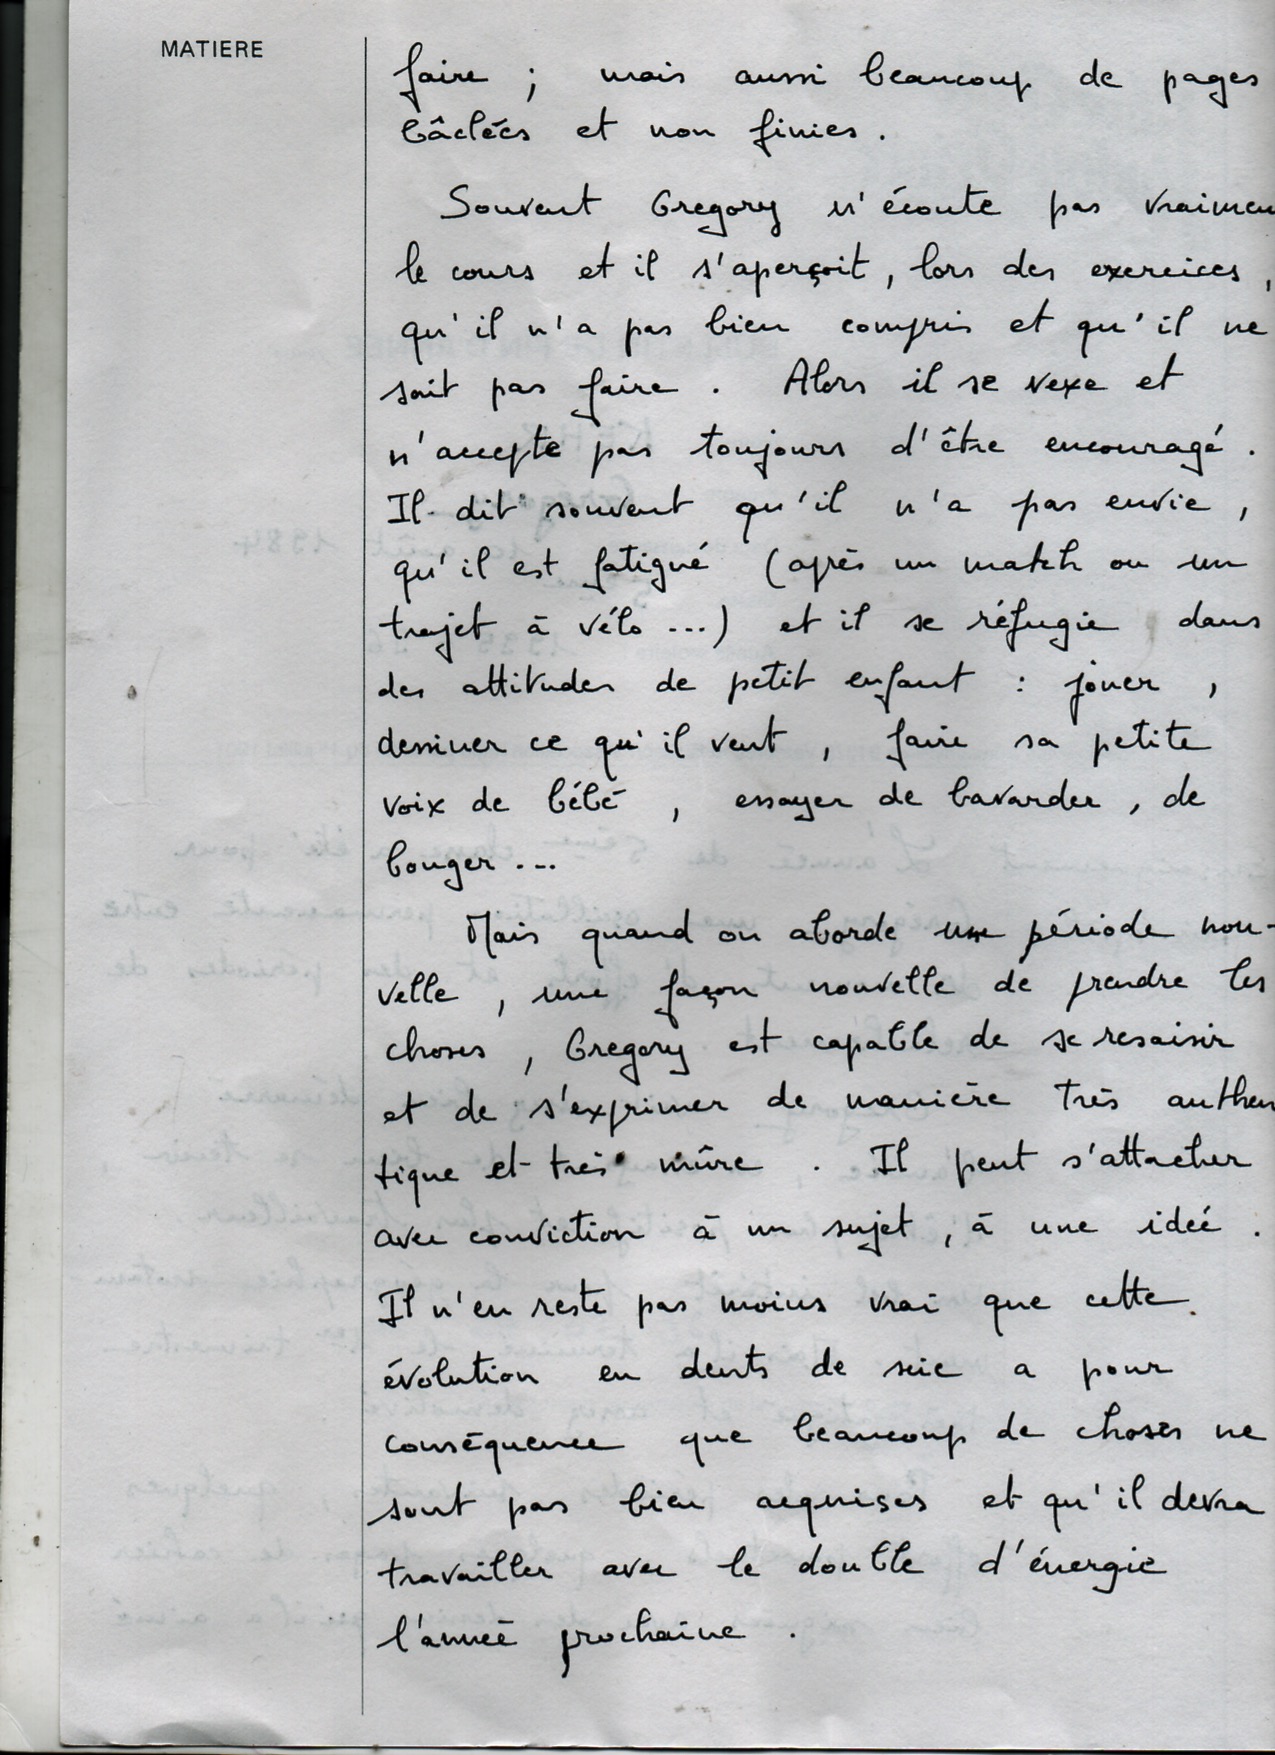 MATIERE
faire ; mais aussi beaucoup de pages
bâclées et non finies .
Souvent Gregory n'écoute pas vraimen
le cours et il s'aperçoit , lors des exercices ,
qu'il n'a pas bien compris et qu'il ne
sait pas faire . Alors il se vexe et
n'accepte pas toujours d'être encouragé .
Il dit souvent qu'il n'a pas envie ,
qu'il est fatigué (après un match ou un
trajet à vélo ...) et il se réfugie dans
des attitudes de petit enfant : jouer ,
dessiner ce qu'il veut , faire sa petite
voix de bébé , essayer de bavarder , de
bouger ...
Mais quand on aborde une période nou-
velle , une façon nouvelle de prendre les
choses , Gregory est capable de se resaisir
et de s'exprimer de manière très authen
tique et très mûre . Il peut s'attacher
avec conviction à un sujet , à une idée .
Il n'en reste pas moins vrai que cette
évolution en dents de scie a pour
conséquence que beaucoup de choses ne
sont pas bien acquises et qu'il devra
travailler avec le double d'énergie
l'année prochaine .